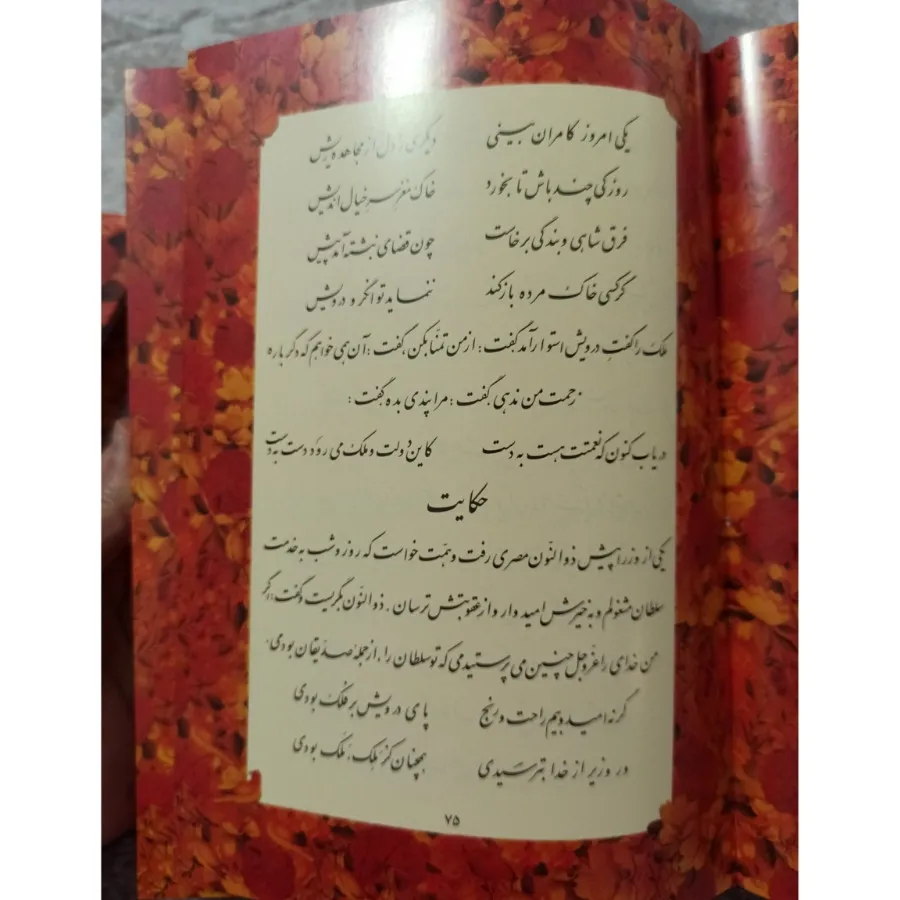 یکی امروز کامران بینی دیگری را دل از مجاهده ریش
روزکی چند باش تا بخورد خاک مغز سر خیال اندیش
فرق شاهی و بندگی برخاست چون قضای نبشته آمد پیش
گر کسی خاک مرده باز کند ننماید توانگر و درویش
ملک را گفتِ درویش استوار آمد گفت: از من تمنّا بکن، گفت: آن همی خواهم که دگر باره
زحمت من ندهی گفت: مرا پندی بده گفت:
دریاب کنون که نعمتت هست به دست کاین دولت و ملک می رود دست به دست
حکایت
یکی از وزرا پیش ذوالنّون مصری رفت و همّت خواست که روز و شب به خدمت
سلطان مشغولم و به خیرش امیدوار و از عقوبتش ترسان. ذوالنّون بگریست و گفت: اگر
من خدای را عزّوجل چنین می پرستیدمی که تو سلطان را، از جمله صدّیقان بودمی.
گر نه امید و بیم راحت و رنج پای درویش بر فلک بودی
ور وزیر از خدا بترسیدی همچنان کز مَلِک، مَلَک بودی
۷۵